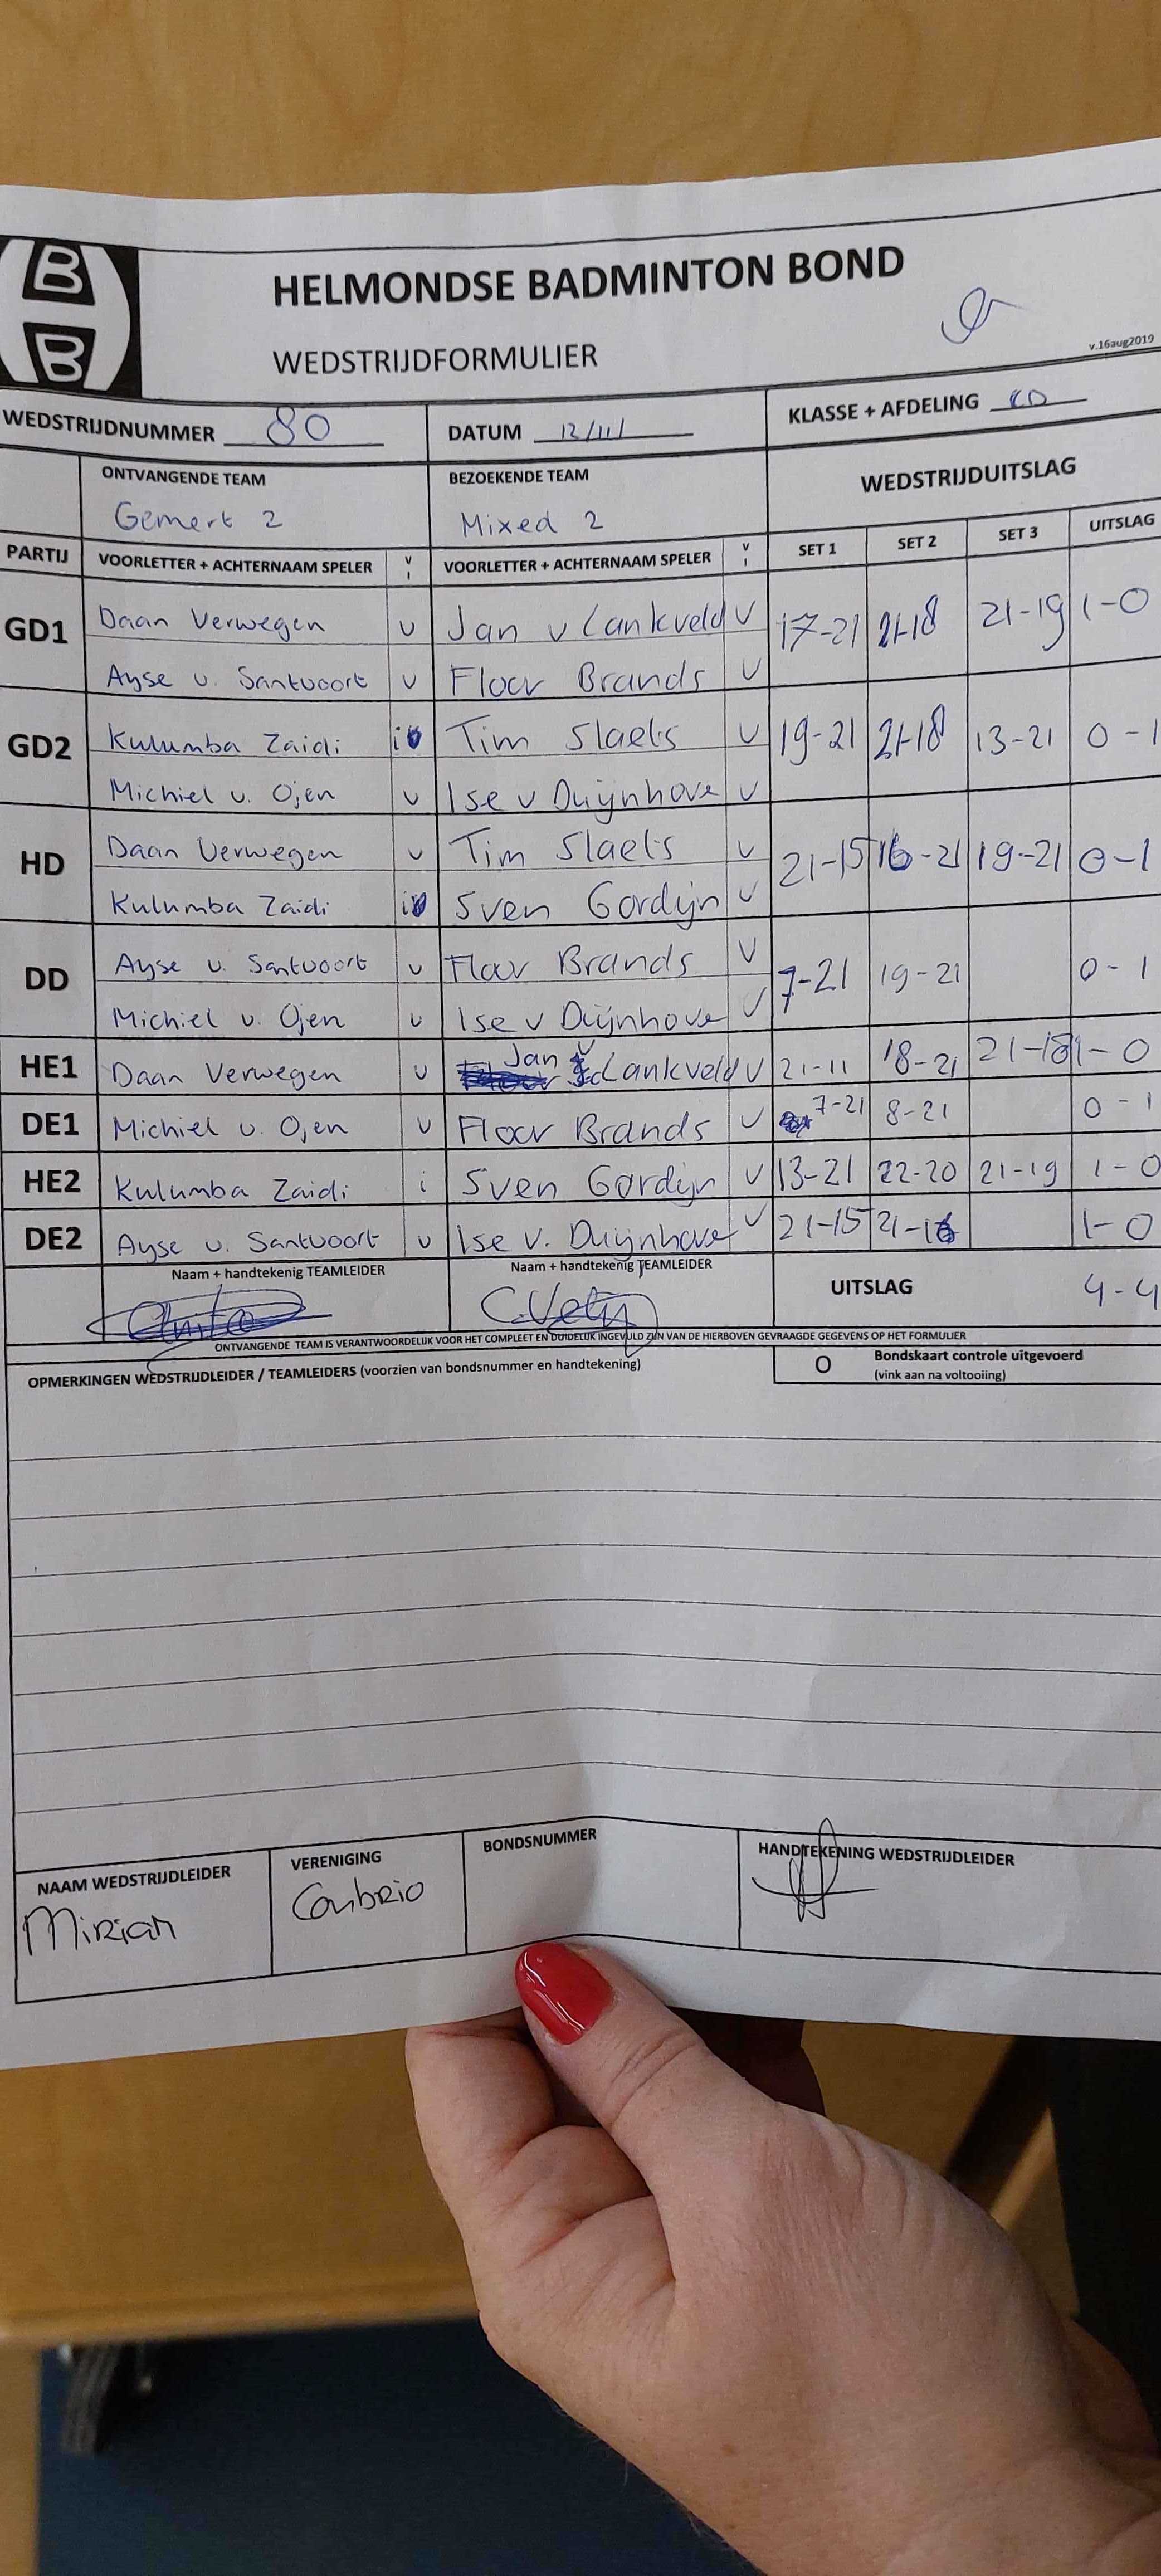 B
B
HELMONDSE BADMINTON BOND
WEDSTRIJDFORMULIER
v.16aug2019
WEDSTRIJDNUMMER 80 DATUM 12/11/ KLASSE + AFDELING
ONTVANGENDE TEAM BEZOEKENDE TEAM WEDSTRIJDUITSLAG
Gemert 2 Mixed 2
PARTIJ VOORLETTER + ACHTERNAAM SPELER V I VOORLETTER + ACHTERNAAM SPELER V I SET 1 SET 2 SET 3 UITSLAG
GD1 Daan Verwegen v Jan v Lankveld v 17-21 21-18 21-19 1-0
Ayse v. Santvoort v Floor Brands v
GD2 Kulumba Zaidi i Tim Slaets v 19-21 21-18 13-21 0-1
Michiel v. Ojen v Ise v Duijnhove v
HD Daan Verwegen v Tim Slaets v 21-15 16-21 19-21 0-1
Kulumba Zaidi i Sven Gordijn v
DD Ayse v. Santvoort v Floor Brands v 7-21 19-21 0-1
Michiel v. Ojen v Ise v Duijnhove v
HE1 Daan Verwegen v Jan v Lankveld v 21-11 18-21 21-18 1-0
DE1 Michiel v. Ojen v Floor Brands v 7-21 8-21 0-1
HE2 Kulumba Zaidi i Sven Gordijn v 13-21 22-20 21-19 1-0
DE2 Ayse v. Santvoort v Ise v. Duijnhove v 21-15 21-16 1-0
Naam + handtekenig TEAMLEIDER Naam + handtekenig TEAMLEIDER UITSLAG 4-4
ONTVANGENDE TEAM IS VERANTWOORDELIJK VOOR HET COMPLEET EN DUIDELIJK INGEVULD ZIJN VAN DE HIERBOVEN GEVRAAGDE GEGEVENS OP HET FORMULIER
OPMERKINGEN WEDSTRIJDLEIDER / TEAMLEIDERS (voorzien van bondsnummer en handtekening) O Bondskaart controle uitgevoerd
(vink aan na voltooiing)
NAAM WEDSTRIJDLEIDER VERENIGING BONDSNUMMER HANDTEKENING WEDSTRIJDLEIDER
Miriam Conbrio